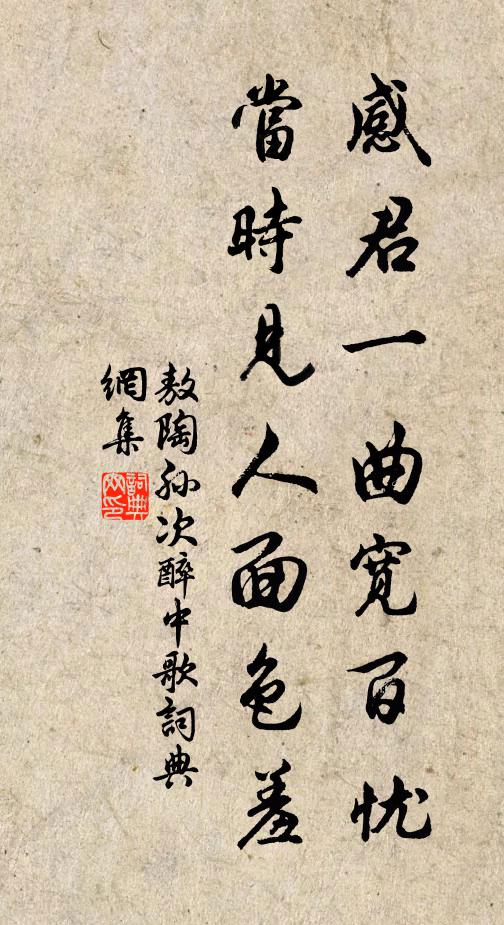 感君一曲寬百忧
當時見人面色羞
敖陶孙次醉中歌詞典
網集
詞典
网印